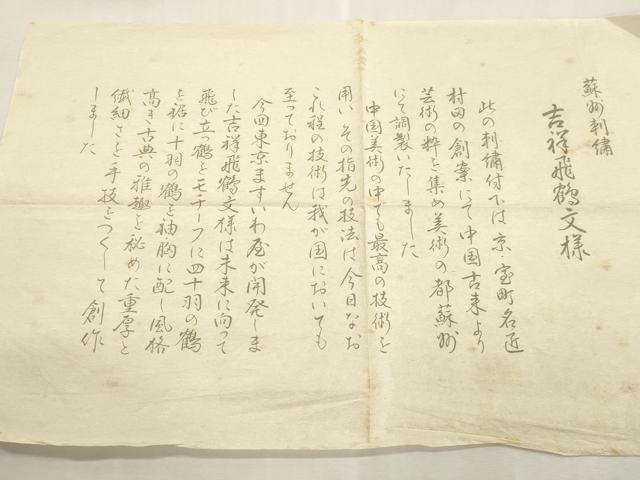 蘇州刺繡
吉祥飛鶴文様
此の刺繡付下は京・室町名匠
村田の創案にて中国古来より
芸術の粋を集め美術の都蘇州
にて調製いたしました
中国美術の中でも最高の技術を
用い その指先の技法は今日なお
これ程の技術は我が国においても
至っておりません
今回東京ますいわ屋が開発しま
した吉祥飛鶴文様は未来に向って
飛び立つ鶴をモチーフに四十羽の鶴
を裾に十羽の鶴を袖胸に配し風格
高き古典の雅趣を秘めた重厚と
繊細さを手技をつくして創作
しました